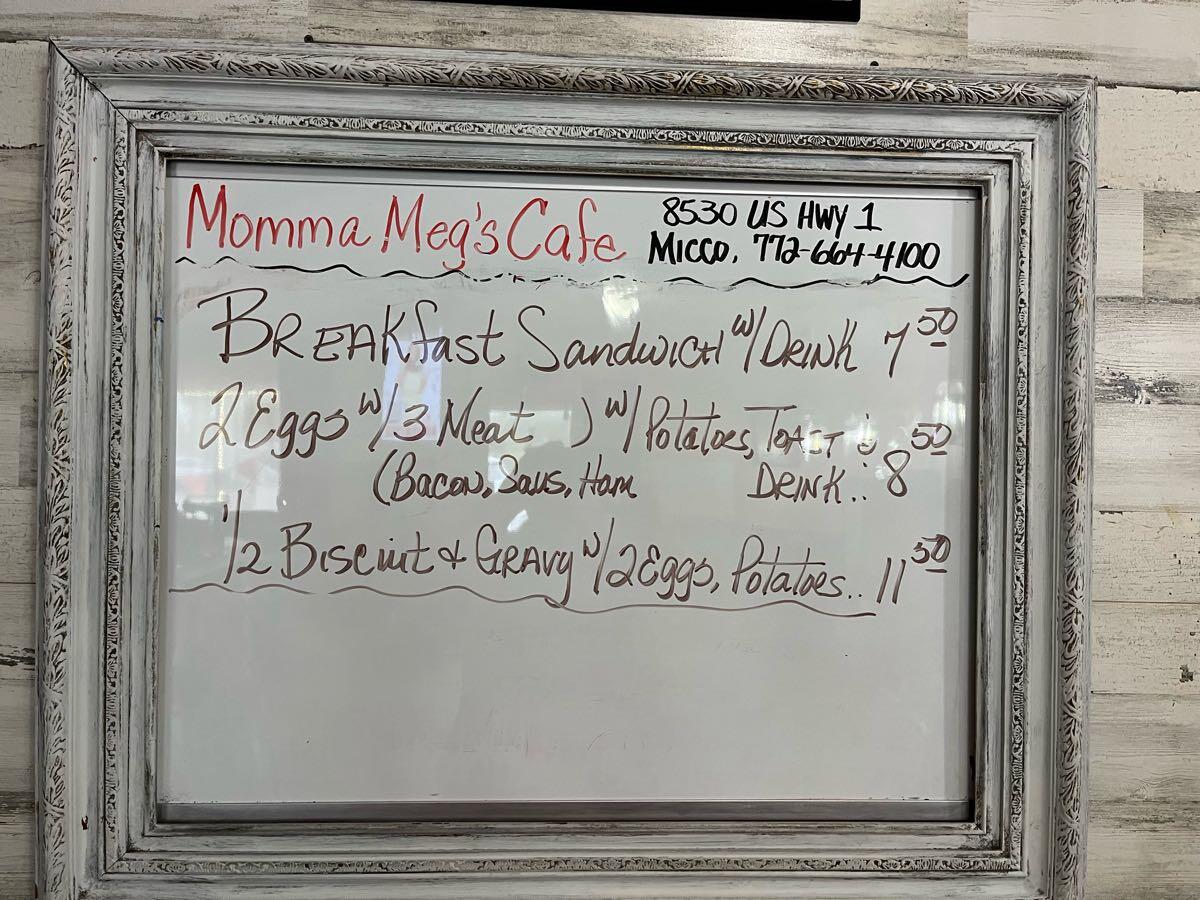 Momma Meg's Cafe
8530 US HWY 1
Micco, 772-664-4100
Breakfast Sandwich w/ Drink 7 50
2 Eggs w/ 3 Meat ) w/ Potatoes, Toast &
(Bacon, Saus, Ham Drink.. 8 50
1/2 Biscuit & Gravy w/ 2 Eggs, Potatoes.. 11 50